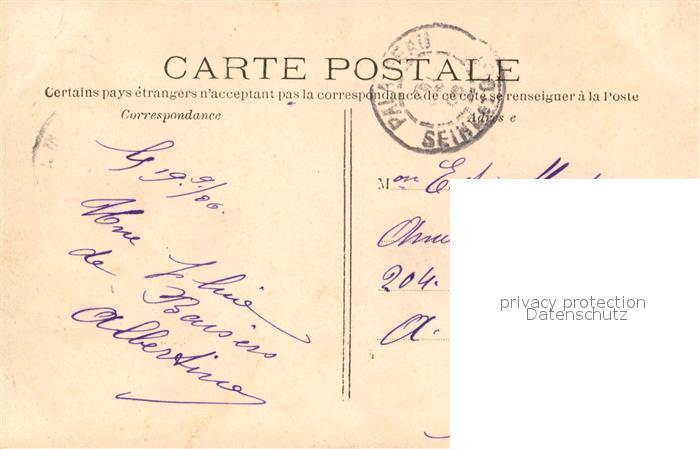 CARTE POSTALE
Certains pays étrangers n'acceptant pas la correspondance de ce côté se renseigner à la Poste
Correspondance
Adresse
PALAISEAU
SEINE-ET-OISE
19/9/06.
Une
de Baisers
Albertine
M on
204.
A.
privacy protection
Datenschutz